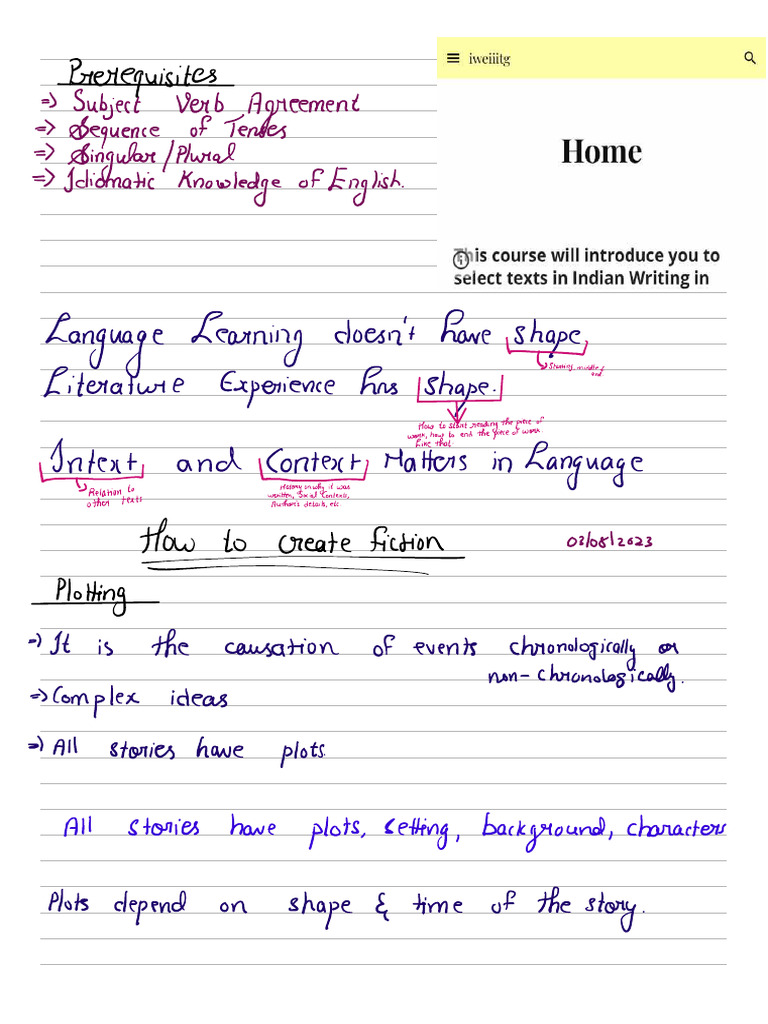 Prerequisites
=> Subject Verb Agreement
=> Sequence of Tenses
=> Singular/Plural
=> Idiomatic Knowledge of English.
iweiiitg
Home
This course will introduce you to
select texts in Indian Writing in
Language Learning doesn't have shape,
Starting, middle, end
Literature Experience has shape.
How to start reading the piece of
work, how to end the piece of work.
Like that.
Intext and Context Matters in Language
Relation to
other texts
History on why it was
written, Social Contexts,
Author's details, etc.
How to create fiction
03/08/2023
Plotting
=> It is the causation of events chronologically or
non-chronologically.
=> Complex ideas
=> All stories have plots.
All stories have plots, setting, background, characters
Plots depend on shape & time of the story.